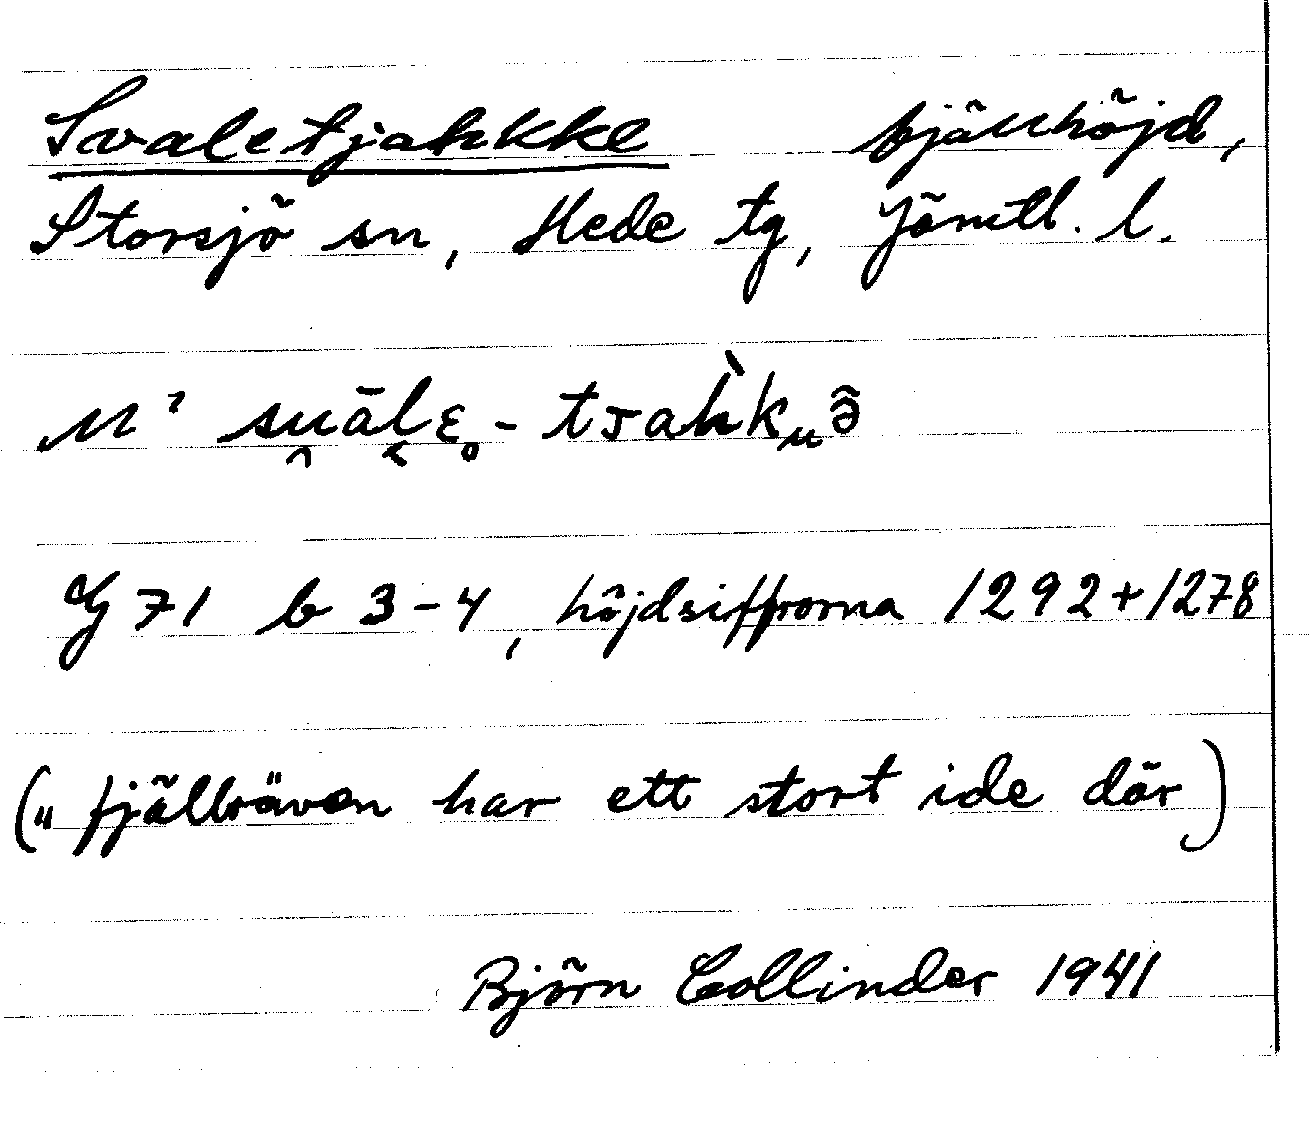 Svaletjahkke fjällhöjd,
Storsjö sn, Hede tg, Jämtl. l.
su̯āl̬ɛ̥ - tᴊah̀kᵤə̑
G 71 b 3-4, höjdsiffrorna 1292+1278
(„ fjällräven har ett stort ide där)
Björn Collinder 1941